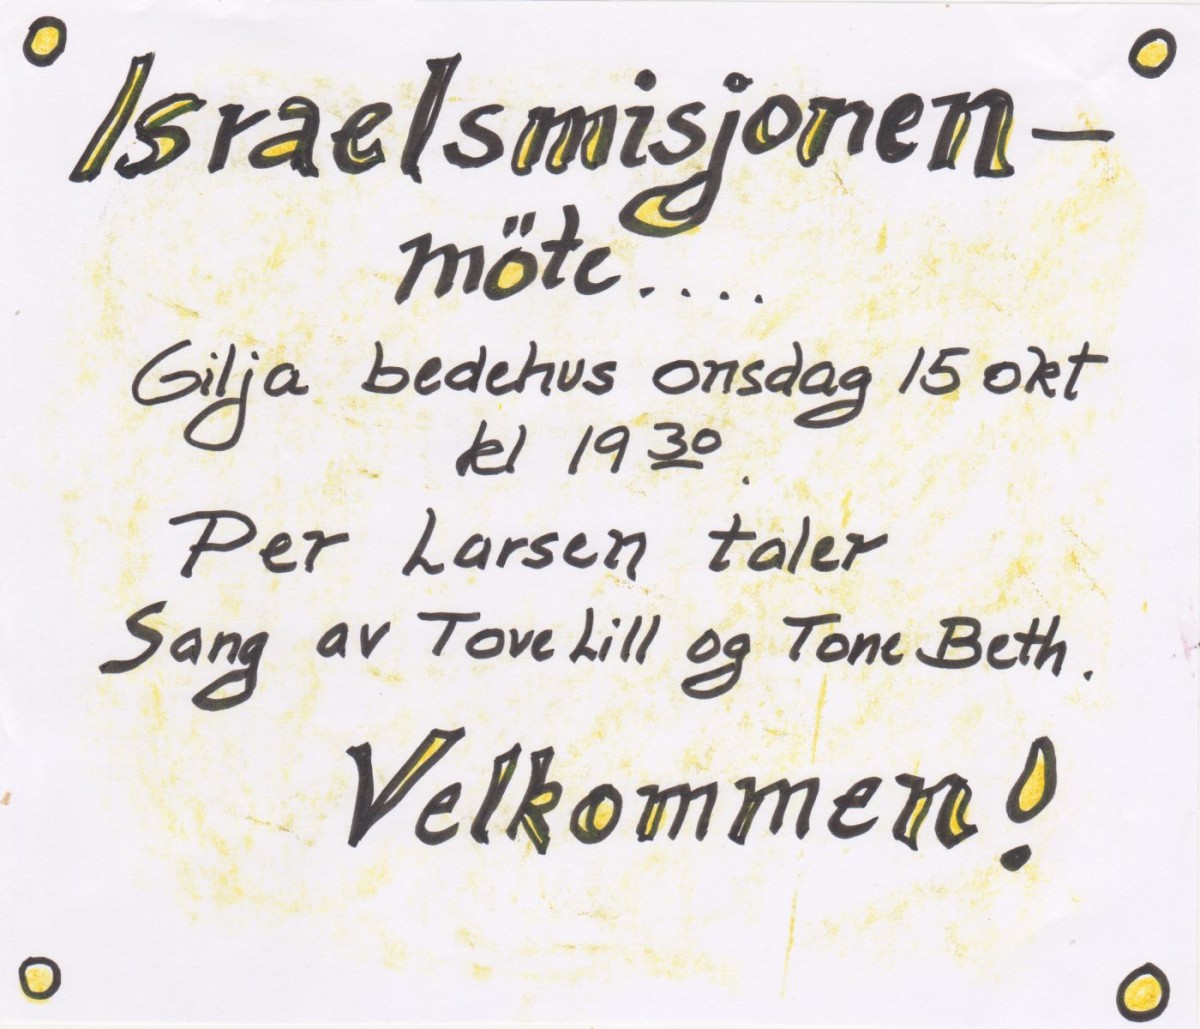 Israelsmisjonen –
möte....
Gilja bedehus onsdag 15 okt
kl 19 30.
Per Larsen taler
Sang av Tove Lill og Tone Beth.
Velkommen!